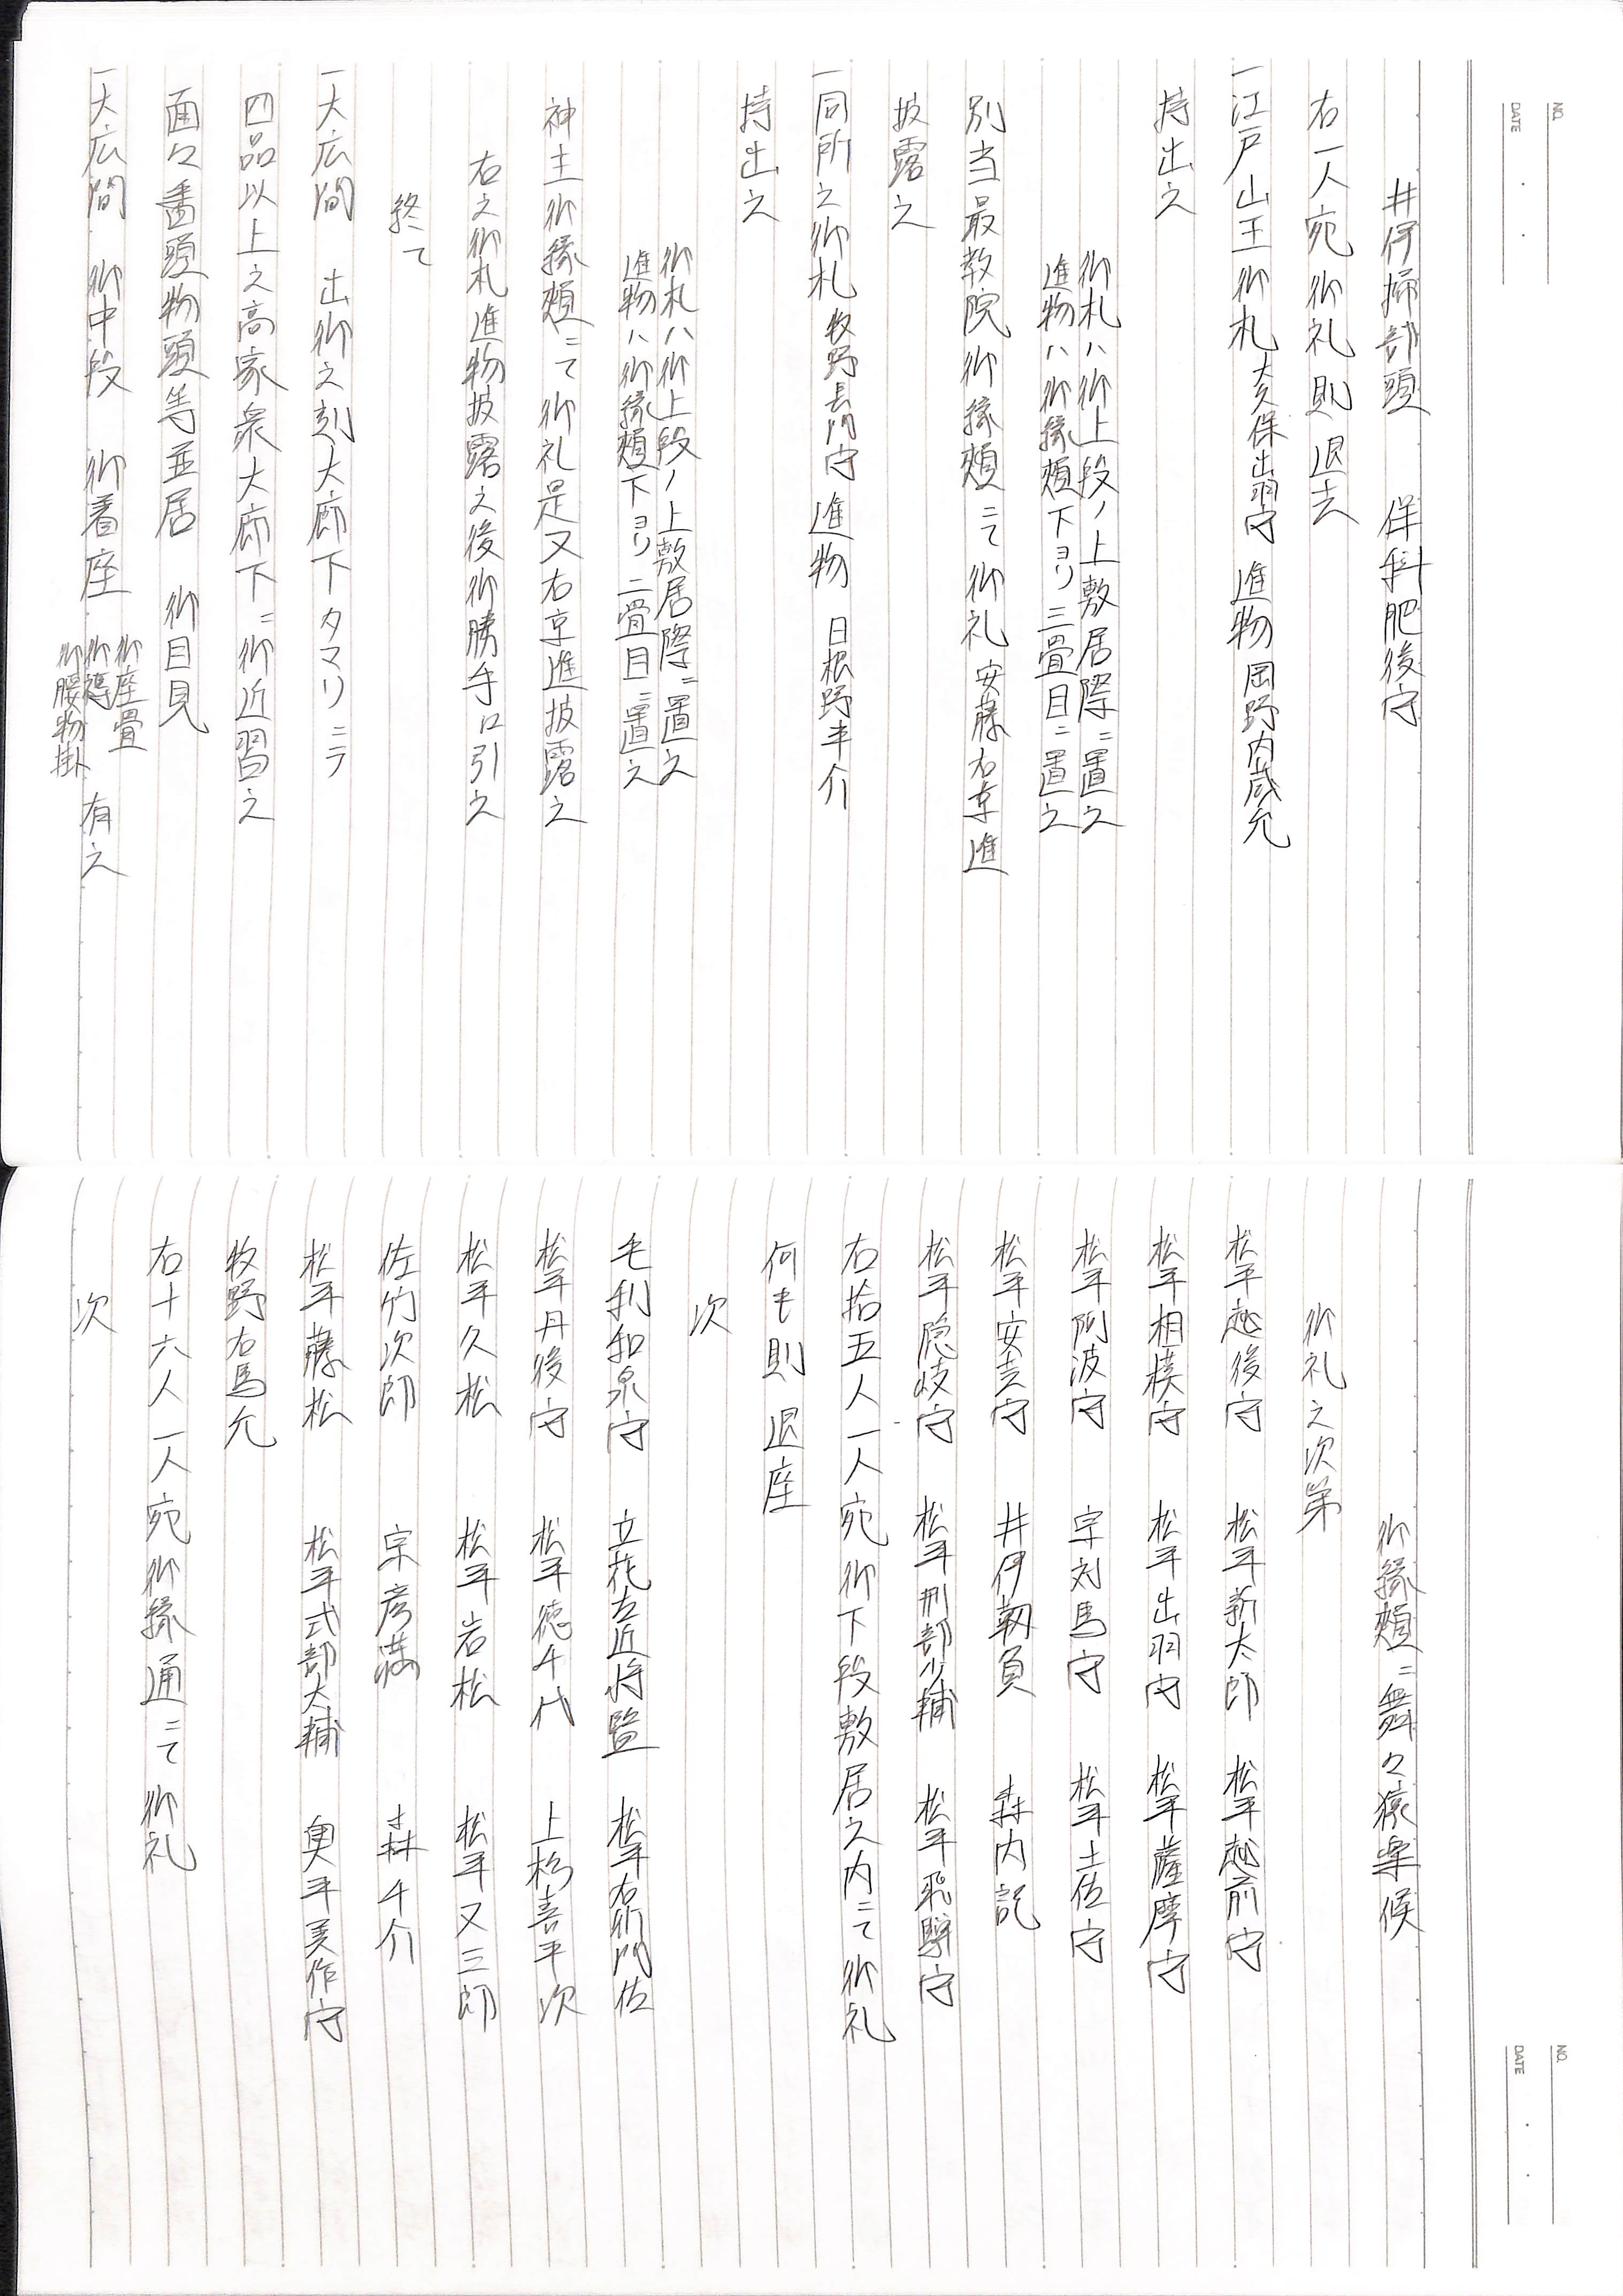 NO.
DATE
井伊掃部頭　保科肥後守
右一人宛御礼則退去
一江戸山王御札 大久保出羽守 進物 岡野内蔵允
持出之
御札ハ御上段ノ上敷居際ニ置之
進物ハ御縁頬下ヨリ三畳目ニ置之
別当最教院御縁頬ニて御礼 安藤右京進
披露之
一同所之御札 牧野長門守 進物 日根野半介
持出之
御札ハ御上段ノ上敷居際ニ置之
進物ハ御縁頬下ヨリ二畳目ニ置之
神主御縁頬ニて御礼是又右京進披露之
右之御札進物披露之後御勝手口引之
終て
一大広間　出御之刻大廊下タマリニテ
四品以上之高家衆大廊下ニ御近習之
面々番頭物頭等並居　御目見
一大広間　御中段　御着座 御座畳
御褥
御腰物掛 有之
NO.
DATE
御縁頬ニ舞々猿楽候
御礼之次第
松平越後守　松平新太郎　松平越前守
松平相模守　松平出羽守　松平薩摩守
松平阿波守　宗対馬守　松平土佐守
松平安芸守　井伊靱負　森内記
松平隠岐守　松平刑部少輔　松平飛騨守
右拾五人一人宛御下段敷居之内ニて御礼
何も則退座
次
毛利和泉守　立花左近将監　松平右衛門佐
松平丹後守　松平徳千代　上杉喜平次
松平久松　松平岩松　松平又三郎
佐竹次郎　宗彦満　森千介
松平藤松　松平式部大輔　奥平美作守
牧野右馬允
右十六人一人宛御縁通ニて御礼
次